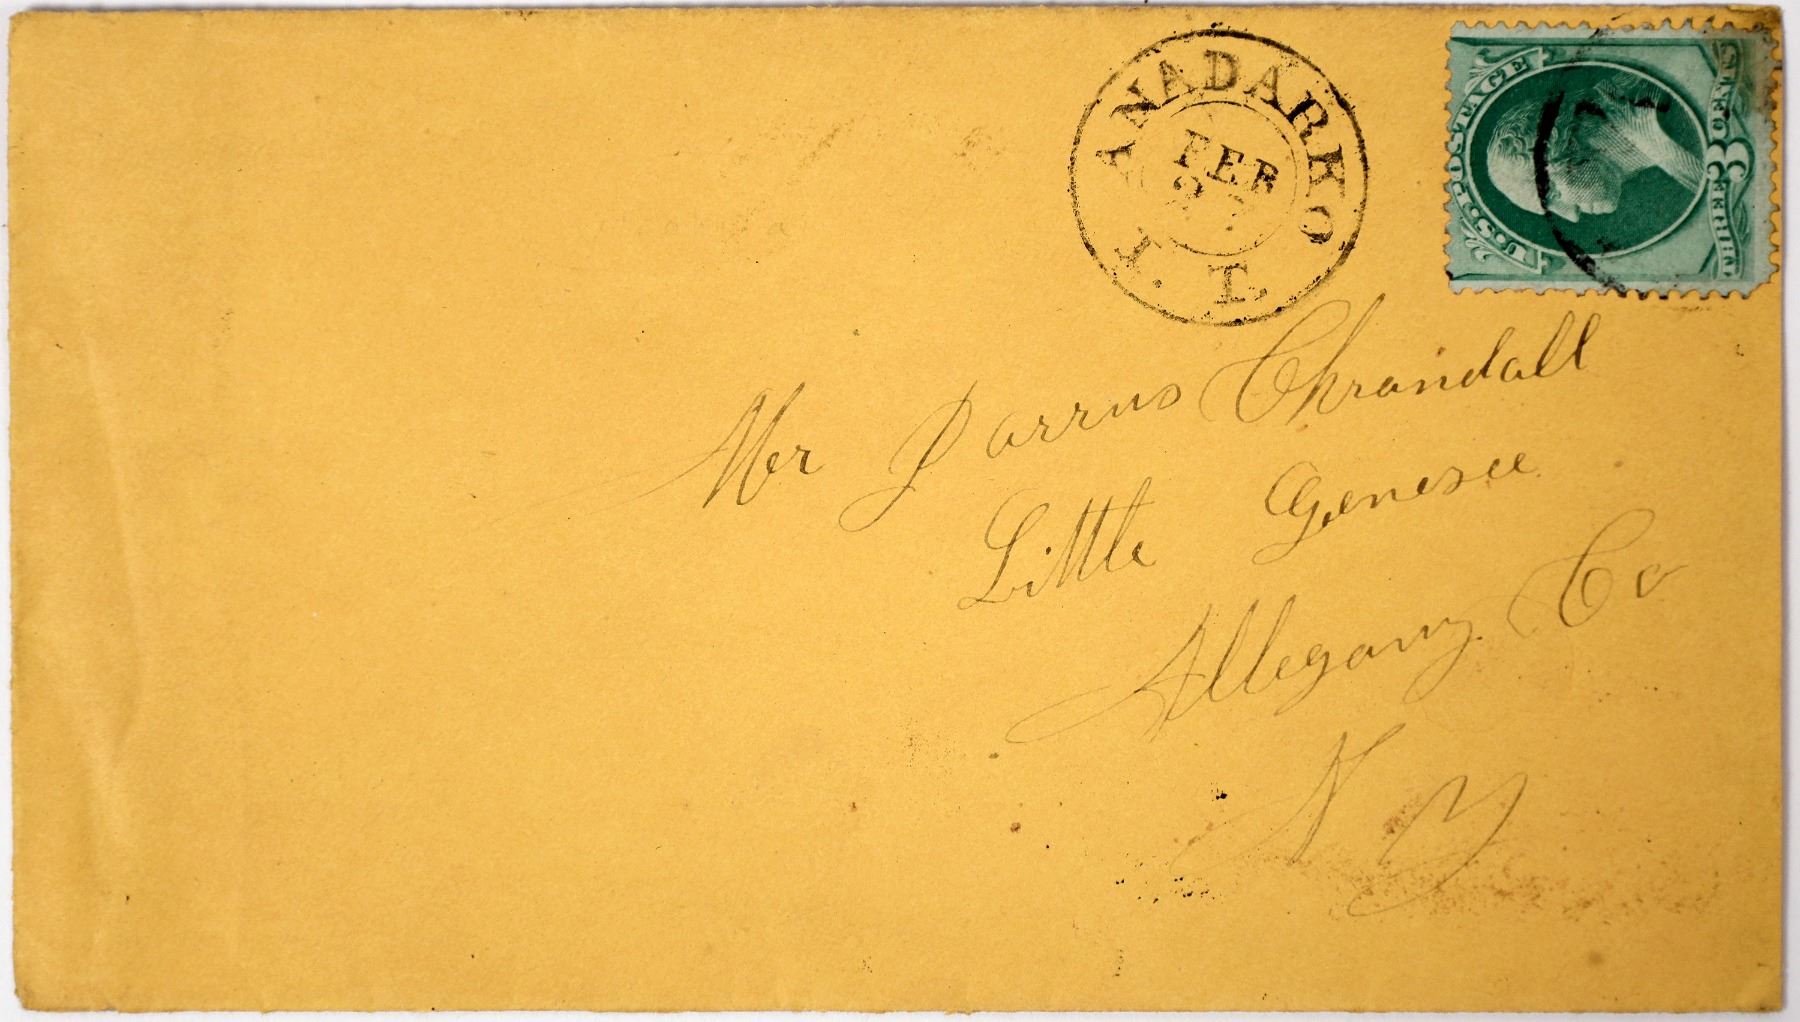 ANADARKO
FEB
27
I. T.
U.S. POSTAGE
THREE 3 CENTS
Mr Darrus Chrandall
Little Genesee
Allegany Co
N Y